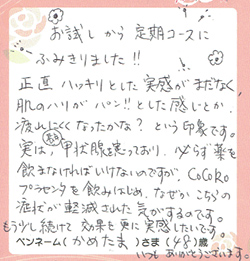 お試しから定期コースに
ふみきりました!!
正直ハッキリとした実感がまだなく
肌のハリがパン!!とした感じとか、
疲れにくくなったかな?という印象です。
実は、甲状腺を患っており、必らず薬を
飲まなければいけないのですが、CoCoRo
プラセンタを飲みはじめ、なぜかこちらの
症状が軽減された気がするのです。
もう少し続けて効果を更に実感したいです。
ペンネーム(かめたま)さま(48)歳
いつもありがとうございます。